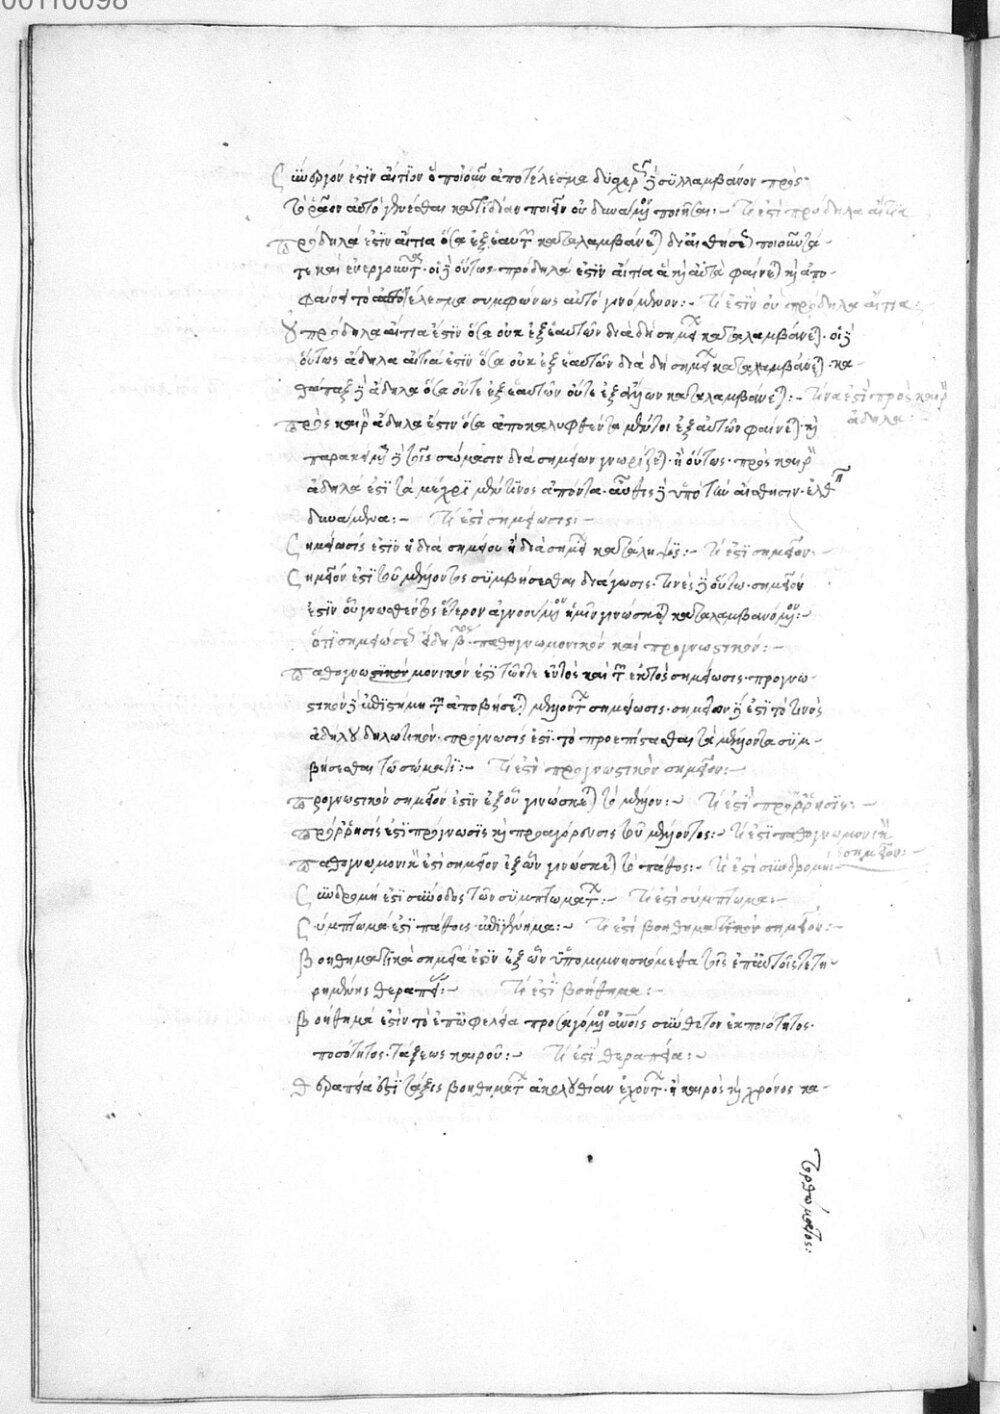 00110098
Συνεργόν ἐστιν αἴτιον ὃ ποιοῦν ἀποτέλεσμα δυσχερῶς δὲ συλλαμβάνον πρὸς
τὸ ῥᾷον αὐτὸ γενέσθαι κατ' ἰδίαν ποιεῖν οὐ δυνάμενον ποιῆσαι:- Τί ἐστι πρόδηλα αἴτια
Πρόδηλά ἐστιν αἴτια ὅσα ἐξ ἑαυτῶν καταλαμβάνεται δι' αἰσθήσεως ποιοῦντά
τε καὶ ἐνεργοῦντα· οἱ δὲ οὕτως· πρόδηλά ἐστιν αἴτια ἃ καὶ αὐτὰ φαίνεται καὶ ἀπο-
φαίνει τὸ ἀποτέλεσμα συμφώνως αὐτὸ γινόμενον:- Τί ἐστιν οὐ πρόδηλα αἴτια:
Οὐ πρόδηλα αἴτια ἐστὶν ὅσα οὐκ ἐξ ἑαυτῶν διὰ δὴ σημείων καταλαμβάνεται· οἱ δὲ
οὕτως ἄδηλα αἴτιά ἐστιν ὅσα οὐκ ἐξ ἑαυτῶν διὰ δὴ σημείων καταλαμβάνεται· κα-
θάπαξ δὲ ἄδηλα ὅσα οὔτε ἐξ ἑαυτῶν οὔτε ἐξ ἄλλων καταλαμβάνεται:- Τίνα ἐστὶ πρὸς καιρὸν
ἄδηλα:
Πρὸς καιρὸν ἄδηλα ἐστιν ὅσα ἀποκαλυφθέντα μέντοι ἐξ αὐτῶν φαίνεται· καὶ
παρακείμενα δὲ τοῖς σώμασιν διὰ σημείων γνωρίζεται· ἢ οὕτως· πρὸς καιρὸν
ἄδηλά ἐστι τὰ μέχρι μέν τινος ἀπόντα· αὖθις δὲ ὑπὸ τὴν αἴσθησιν ἐλθεῖν
δυνάμενα:- Τί ἐστι σημείωσις:-
Σημείωσίς ἐστιν ἡ διὰ σημείου ἢ διὰ σημείων κατάληψις:- Τί ἐστι σημεῖον·
Σημεῖόν ἐστι τοῦ μέλλοντος συμβήσεσθαι διάγνωσις· τινὲς δὲ οὕτω· σημεῖόν
ἐστιν οὗ γνωσθέντος ἕτερον ἀγνοούμενον ἡμῖν γινώσκεται καταλαμβανόμενον:-
ὅτι σημειώσεως εἴδη β· παθογνωμονικὸν καὶ προγνωστικόν:-
Παθογνωστικον μονικόν ἐστι τῶν τε ἐντὸς καὶ τῶν ἐκτὸς σημείωσις· προγνω-
στικὸν δὲ ἐπιστήμη τῶν ἀποβήσεσθαι μελλόντων σημείωσις· σημεῖον δέ ἐστι τό τινος
ἀδήλου δηλωτικόν· πρόγνωσις ἐστὶ τὸ προεπίστασθαι τὰ μέλλοντα συμ-
βήσεσθαι τῷ σώματι:- Τί ἐστι προγνωστικὸν σημεῖον:-
Προγνωστικὸν σημεῖόν ἐστιν ἐξ οὗ γινώσκεται τὸ μέλλον:- Τί ἐστι πρόρρησις:-
Πρόρρησίς ἐστι πρόγνωσις καὶ προαγόρευσις τοῦ μέλλοντος:- Τί ἐστι παθογνωμονικὸν
σημεῖον:-
Παθογνωμονικόν ἐστι σημεῖον ἐξ ὧν γινώσκεται τὸ πάθος:- Τί ἐστι συνδρομή
Συνδρομή ἐστι σύνοδος τῶν συμπτωμάτων:- Τί ἐστι σύμπτωμα:-
Σύμπτωμά ἐστι πάθους ἐπιγέννημα:- Τί ἐστι βοηθηματικὸν σημεῖόν:-
Βοηθηματικὰ σημεῖά ἐστιν ἐξ ὧν ὑπομιμνησκόμεθα τῆς ἐπ' αὐτοῖς τετη-
ρημένης θεραπείας:- Τί ἐστι βοήθημα:-
Βοήθημά ἐστιν τὸ ἐπ' ὠφελείᾳ προσαγόμενον σύνθετον ἐκ ποιότητος·
ποσότητος· τάξεως καιροῦ:- Τί ἐστι θεραπεία:-
Θεραπεία ἐστὶ τάξις βοηθημάτων ἀκολουθίαν ἐχόντων· ἢ καιρὸς καὶ χρόνος κα-